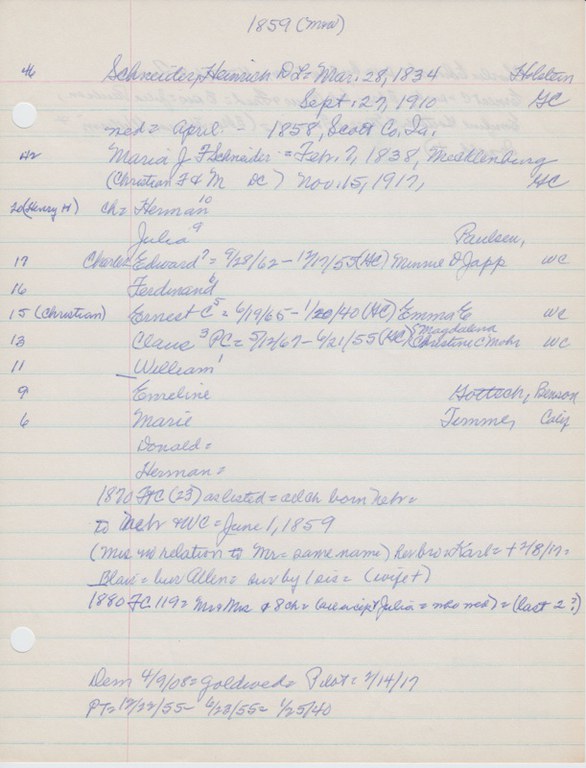 1859 (Mrw)
46 Schneider, Heinrich D L = Mar. 28, 1834 Holstein
Sept. 27, 1910 GC
med = April - 1858, Scott Co, Ia.
42 Maria J F Schneider = Feb. 7, 1838, Mecklenburg
(Christian F & M DC) Nov. 15, 1917, GC
20 (Henry H) ch = Herman 10
Julia 9 Paulsen,
17 Charles Edward 7 = 9/28/62 - 12/17/55 (HC) Minnie D Japp WC
16 Ferdinand 6
15 (Christian) Ernest C 5 = 6/19/65 - 1/20/40 (HC) Emma E WC
13 Claus 3 PC = 5/12/67 - 6/21/55 (HC) Magdalena Christine C Mohr WC
11 William 1
9 Emeline Gottsch, Benson
6 Marie Timme, Calif
Donald =
Herman =
1870 FC (23) as listed = all ch born Nebr =
to Nebr & WC = June 1, 1859
(Mrs no relation to Mr = same name) her bro Karl = + 2/8/17 =
Blair = bur Allen = sur by Lois = (wife +)
1880 FC 119 = Mr & Mrs & 8 ch = (as except Julia = who med) = (last 2 ?)
Dem 4/9/08 = goldwed = Pilot = 2/14/17
PT = 12/22/55 = 6/23/55 = 1/25/40